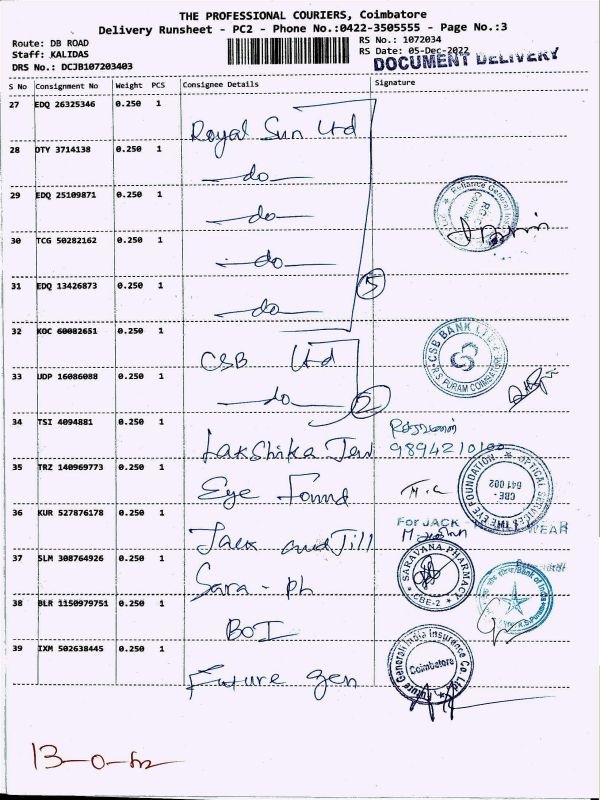 THE PROFESSIONAL COURIERS, Coimbatore
Delivery Runsheet - PC2 - Phone No.:0422-3505555 - Page No.:3
Route: DB ROAD
Staff: KALIDAS
DRS No.: DCJB107203403
RS No.: 1072034
RS Date: 05-Dec-2022
DOCUMENT DELIVERY
S No Consignment No Weight PCS Consignee Details Signature
27 EDQ 26325346 0.250 1
Royal Sun Ltd
28 DTY 3714138 0.250 1
do
29 EDQ 25109871 0.250 1
do
30 TCG 50282162 0.250 1
do
31 EDQ 13426873 0.250 1
do
5
Reliance General
32 KOC 60082651 0.250 1
CSB Ltd
CSB BANK LTD
R S PURAM COIMBATORE
33 UDP 16086088 0.250 1
do
2
34 TSI 4094881 0.250 1
Lakshika Jew
9894210100
35 TRZ 140969773 0.250 1
Eye Found
OPTICAL SERVICES THE EYE FOUNDATION
CBE -
641 002
36 KUR 527876178 0.250 1
Jack and Jill
For JACK WEAR
37 SLM 308764926 0.250 1
Sara - Ph
SARAVANA PHARMACY
CBE-2
38 BLR 1150979751 0.250 1
BOI
Bank of India
39 IXM 502638445 0.250 1
Future gen
Future Generali India Insurance Co Ltd
Coimbatore
13-0-